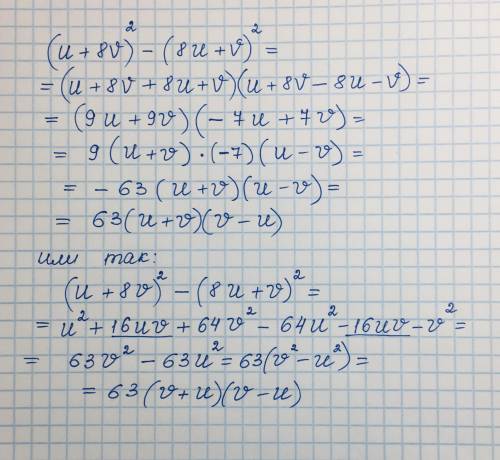 (u + 8v)² - (8u + v)² =
= (u + 8v + 8u + v)(u + 8v - 8u - v) =
= (9u + 9v)(- 7u + 7v) =
= 9(u + v) · (-7)(u - v) =
= - 63(u + v)(u - v) =
= 63(u + v)(v - u)
или так:
(u + 8v)² - (8u + v)² =
= u² + 16uv + 64v² - 64u² - 16uv - v² =
= 63v² - 63u² = 63(v² - u²) =
= 63(v + u)(v - u)